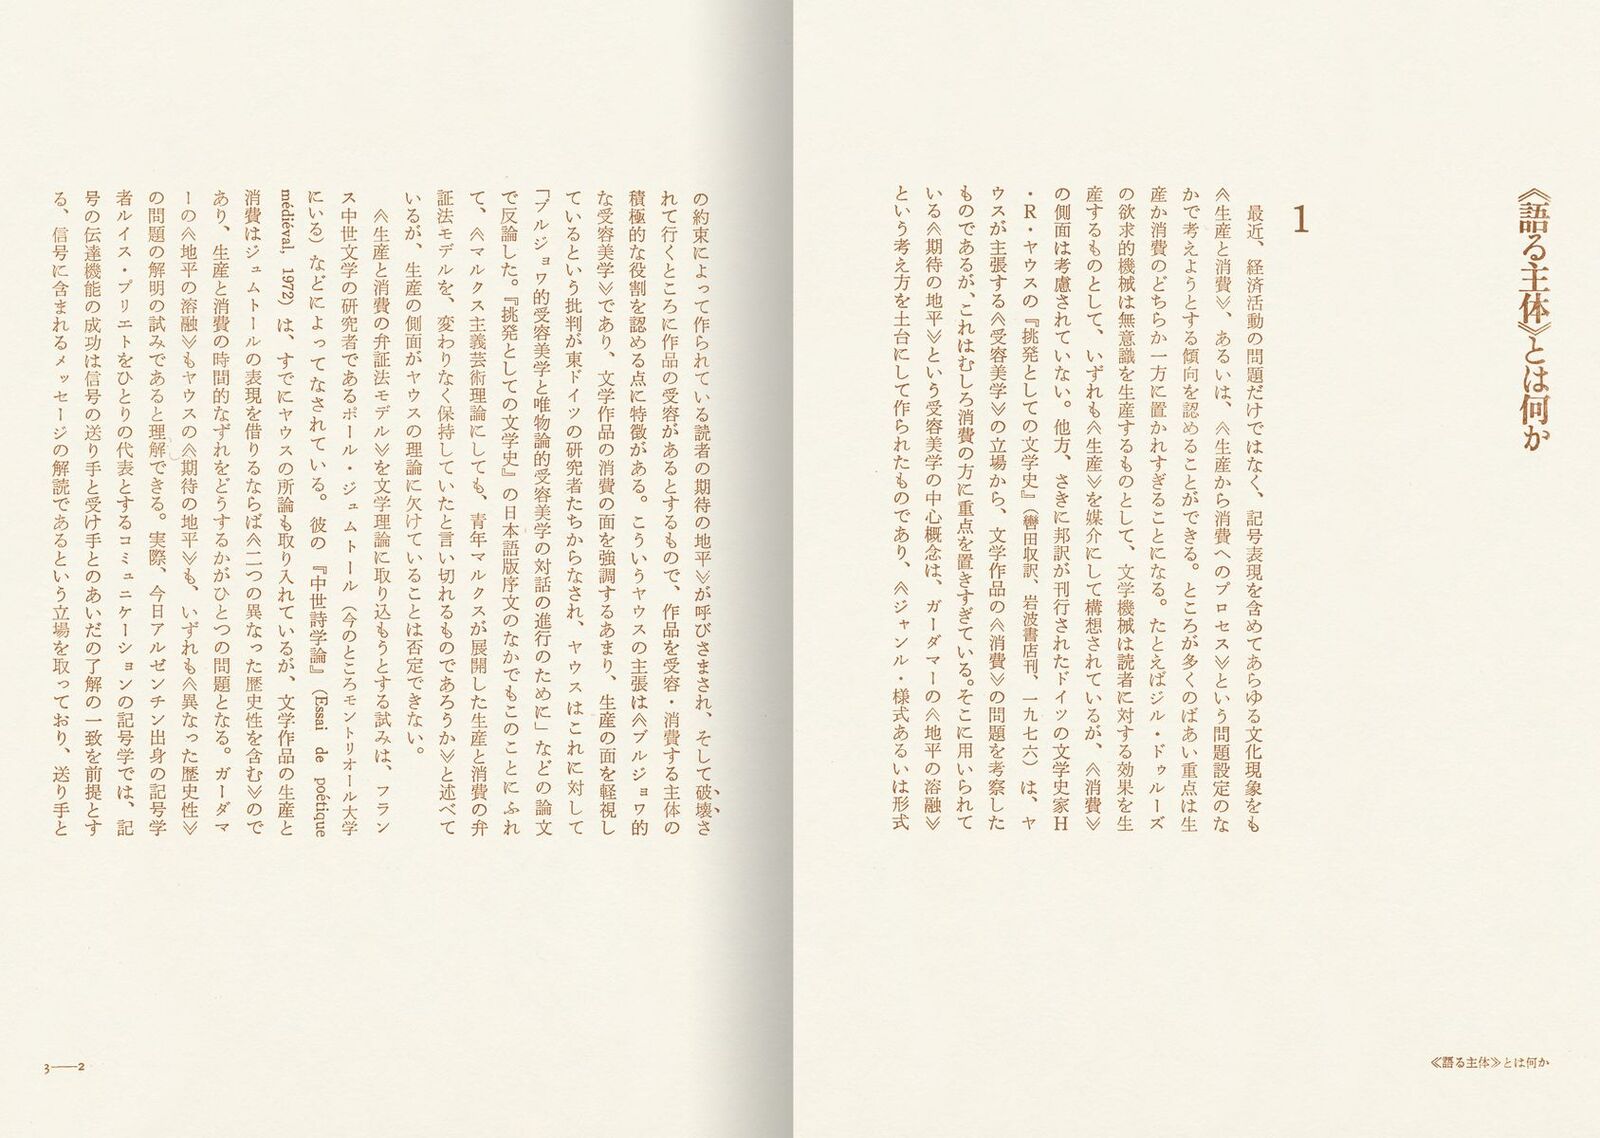 《語る主体》とは何か
1
最近、経済活動の問題だけではなく、記号表現を含めてあらゆる文化現象をも
《生産と消費》、あるいは、《生産から消費へのプロセス》という問題設定のな
かで考えようとする傾向を認めることができる。ところが多くのばあい重点は生
産か消費のどちらか一方に置かれすぎることになる。たとえばジル・ドゥルーズ
の欲求的機械は無意識を生産するものとして、文学機械は読者に対する効果を生
産するものとして、いずれも《生産》を媒介にして構想されているが、《消費》
の側面は考慮されていない。他方、さきに邦訳が刊行されたドイツの文学史家H
・R・ヤウスの『挑発としての文学史』（轡田収訳、岩波書店刊、一九七六）は、ヤ
ウスが主張する《受容美学》の立場から、文学作品の《消費》の問題を考察した
ものであるが、これはむしろ消費の方に重点を置きすぎている。そこに用いられて
いる《期待の地平》という受容美学の中心概念は、ガーダマーの《地平の溶融》
という考え方を土台にして作られたものであり、《ジャンル・様式あるいは形式
の約束によって作られている読者の期待の地平》が呼びさまされ、そして破壊さ
れて行くところに作品の受容があるとするもので、作品を受容・消費する主体の
積極的な役割を認める点に特徴がある。こういうヤウスの主張は《ブルジョワ的
な受容美学》であり、文学作品の消費の面を強調するあまり、生産の面を軽視し
ているという批判が東ドイツの研究者たちからなされ、ヤウスはこれに対して
「ブルジョワ的受容美学と唯物論的受容美学の対話の進行のために」などの論文
で反論した。『挑発としての文学史』の日本語版序文のなかでもこのことにふれ
て、《マルクス主義芸術理論にしても、青年マルクスが展開した生産と消費の弁
証法モデルを、変わりなく保持していたと言い切れるものであろうか》と述べて
いるが、生産の側面がヤウスの理論に欠けていることは否定できない。
《生産と消費の弁証法モデル》を文学理論に取り込もうとする試みは、フラン
ス中世文学の研究者であるポール・ジュムトール（今のところモントリオール大学
にいる）などによってなされている。彼の『中世詩学論』（Essai de poétique
médiéval, 1972）は、すでにヤウスの所論も取り入れているが、文学作品の生産と
消費はジュムトールの表現を借りるならば《二つの異なった歴史性を含む》ので
あり、生産と消費の時間的なずれをどうするかがひとつの問題となる。ガーダマ
ーの《地平の溶融》もヤウスの《期待の地平》も、いずれも《異なった歴史性》
の問題の解明の試みであると理解できる。実際、今日アルゼンチン出身の記号学
者ルイス・プリエトをひとりの代表とするコミュニケーションの記号学では、記
号の伝達機能の成功は信号の送り手と受け手とのあいだの了解の一致を前提とす
る、信号に含まれるメッセージの解読であるという立場を取っており、送り手と
《語る主体》とは何か
3──2